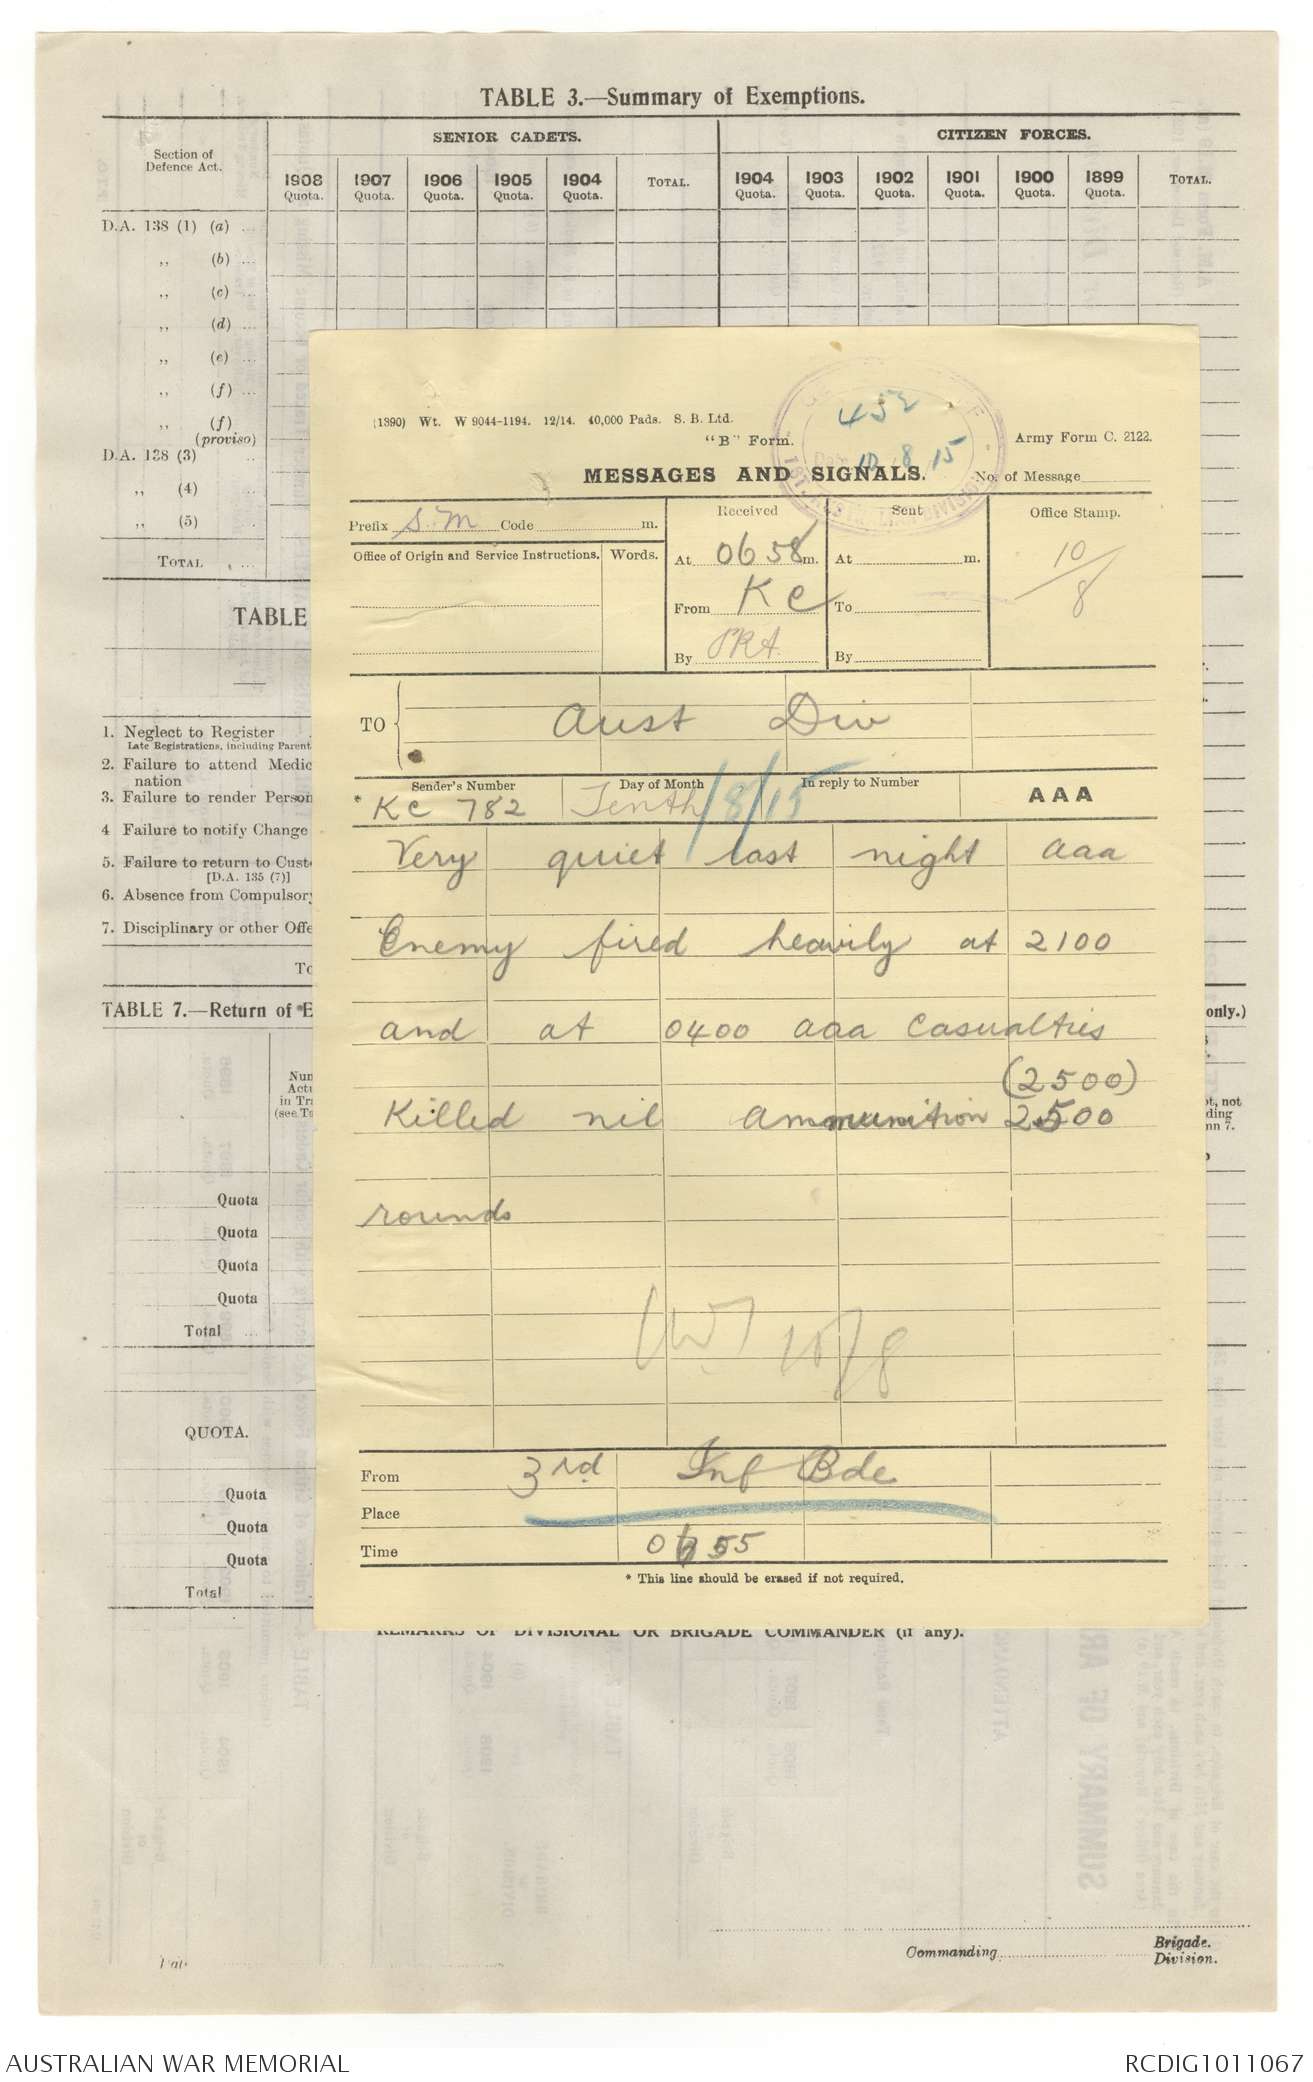 TABLE 3.—Summary of Exemptions.
Section of Defence Act. SENIOR CADETS. CITIZEN FORCES.
1908 Quota. 1907 Quota. 1906 Quota. 1905 Quota. 1904 Quota. TOTAL. 1904 Quota. 1903 Quota. 1902 Quota. 1901 Quota. 1900 Quota. 1899 Quota. TOTAL.
D.A. 138 (1) (a) ...
,, (b) ...
,, (c) ...
,, (d) ...
,, (e) ...
,, (f) ...
,, (f) (proviso)
D.A. 138 (3)
,, (4)
,, (5)
TOTAL
TABLE
1. Neglect to Register
Late Registrations, including Parent
2. Failure to attend Medic
nation
3. Failure to render Person
4 Failure to notify Change
5. Failure to return to Cust
[D.A. 135 (7)]
6. Absence from Compulsory
7. Disciplinary or other Offe
To
TABLE 7.—Return of E
only.)
Num
Actu
in Tra
(see Ta
pt, not
ding
mn 7.
Quota
Quota
Quota
Quota
Total
QUOTA.
Quota
Quota
Quota
Total
(1390) Wt. W 9044-1194. 12/14. 40,000 Pads. S. B. Ltd.
"B" Form. Army Form C. 2122.
MESSAGES AND SIGNALS. No. of Message
452
10/8/15
Prefix S.M Code m. Received Sent Office Stamp.
Office of Origin and Service Instructions. Words. At 0658 m. At m. 10/8
From KC To
By By
TO Aust Div
Sender's Number Day of Month In reply to Number AAA
* KC 782 Tenth/8/15
Very quiet last night aaa
Enemy fired heavily at 2100
and at 0400 aaa Casualties
(2500)
Killed nil Ammunition 2500
rounds
10/8
From 3rd Inf Bde
Place
Time 0655
* This line should be erased if not required.
REMARKS OF DIVISIONAL OR BRIGADE COMMANDER (if any).
Commanding Brigade.
Division.
AUSTRALIAN WAR MEMORIAL RCDIG1011067